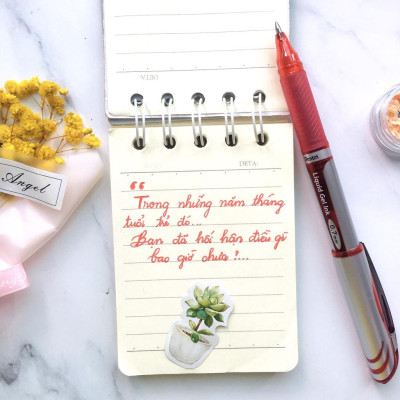 DETA:
DETA:
“
Trong những năm tháng
tuổi trẻ đó...
Bạn đã hối hận điều gì
bao giờ chưa!...
Angel
Pentel
Liquid Gel Ink
0.7